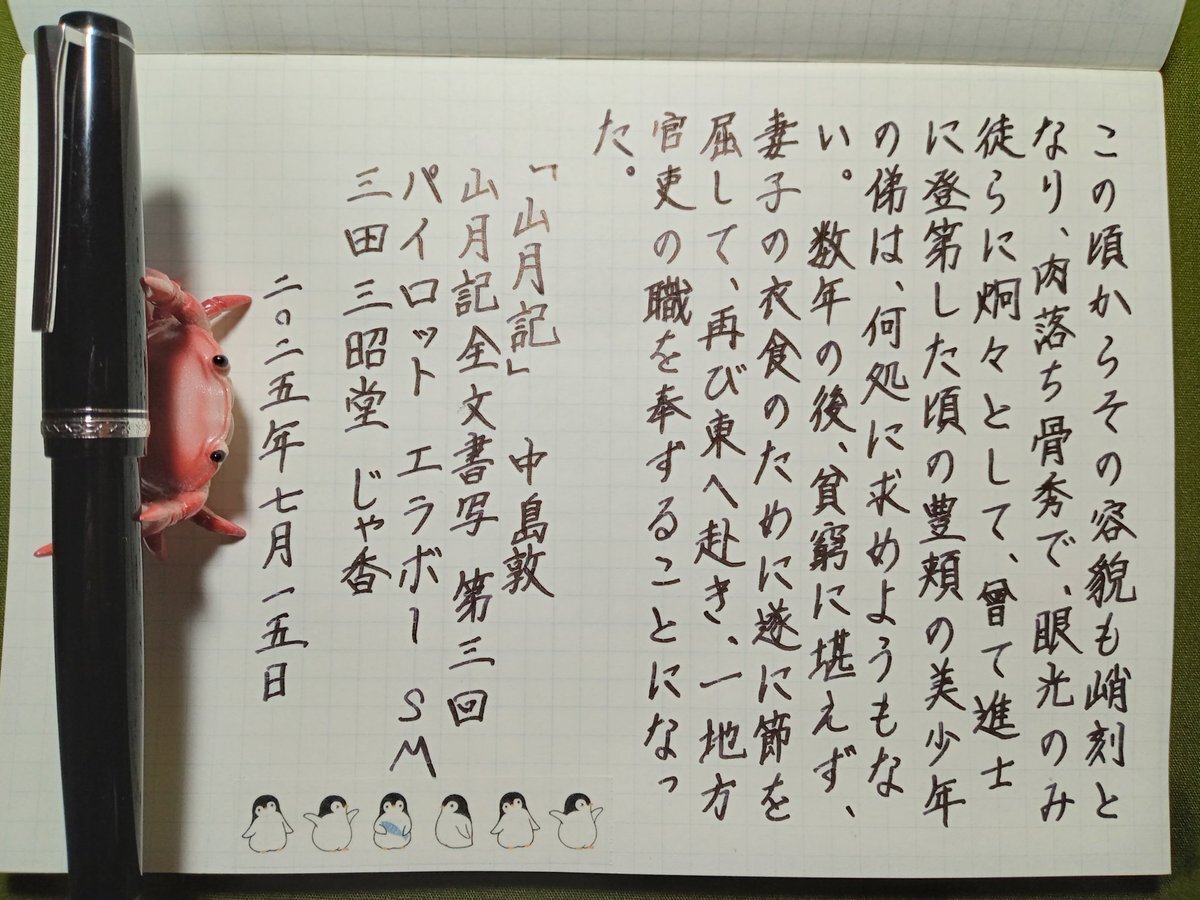 この頃からその容貌も峭刻と
なり、肉落ち骨秀で、眼光のみ
徒らに炯々として、曾て進士
に登第した頃の豊頬の美少年
の俤は、何処に求めようもな
い。数年の後、貧窮に堪えず、
妻子の衣食のために遂に節を
屈して、再び東へ赴き、一地方
官吏の職を奉ずることになっ
た。
「山月記」 中島敦
山月記全文書写 第三回
パイロット エラボー SM
三田三昭堂 じゃ香
二〇二五年七月一五日